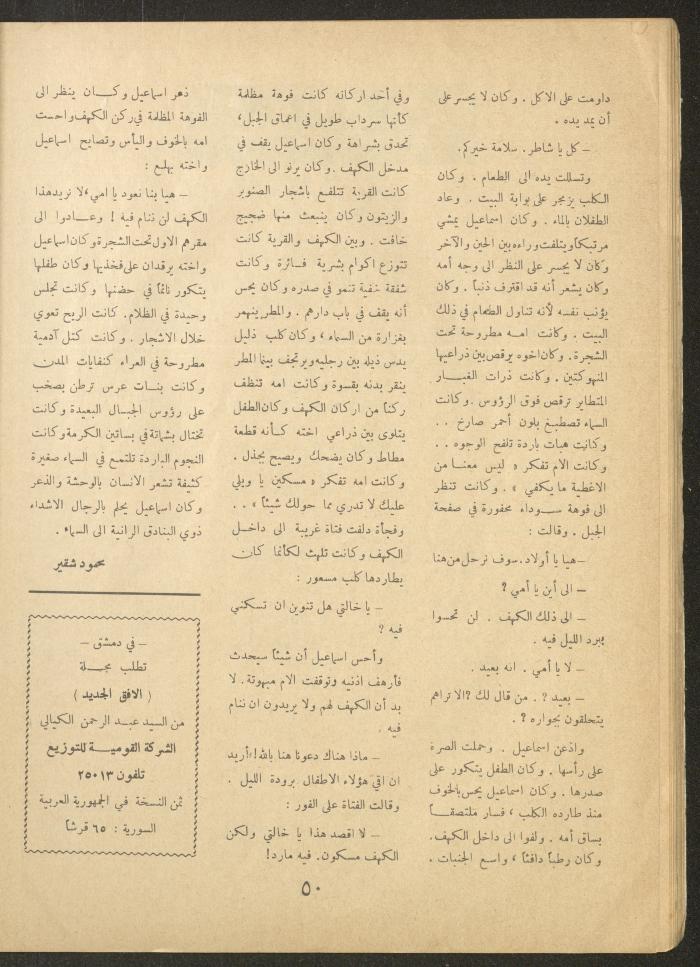 داومت على الاكل . وكان لا يجسر على
أن يمد يده .
– كل يا شاطر. سلامة خيركم.
وتسللت يده الى الطعام . وكان
الكلب يزمجر على بوابة البيت . وعاد
الطفلان بالماء . وكان اسماعيل يمشي
مرتبكاً ويتلفت وراءه بين الحين والآخر
وكان لا يجسر على النظر الى وجه أمه
وكان يشعر أنه قد اقترف ذنباً . وكان
يؤنب نفسه لأنه تناول الطعام في ذلك
البيت . وكانت امه مطروحة تحت
الشجرة. وكان اخوه يرقص بين ذراعيها
المنهوكتين . وكانت ذرات الغبــار
المتطاير ترقص فوق الرؤوس . وكانت
السماء تصطبغ بلون أحمر صارخ . .
وكانت هبات باردة تلفح الوجوه . .
وكانت الام تفكر « ليس معنـا من
الاغطية ما يكفي » . وكانت تنظر
الى فوهة سـوداء محفورة في صفحة
الجبل . وقالت :
– هيا يا أولاد. سوف نرحل من هنا
– الى أين يا أمي ?
– الى ذلك الكهف . لن تحسوا
ببرد الليل فيه .
– لا يا أمي . انه بعيد .
– بعيد ? . من قال لك ? الا تراهم
يتحلقون بجواره ? .
واذعن اسماعيل . وحملت الصرة
على رأسها . وكان الطفل يتكور على
صدرها . وكان اسماعيل يحس بالخوف
منذ طارده الكلب ، فسار ملتصقــاً
بساق أمه . ولفوا الى داخل الكهف.
وكان رطباً دافئاً ، واسع الجنبات .
وفي أحد اركانه كانت فوهة مظلمة
كأنها سرداب طويل في اعماق الجبل،
تحدق بشراهة وكان اسماعيل يقف في
مدخل الكهف . وكان يرنو الى الخارج
كانت القرية تتلفع باشجار الصنوبر
والزيتون وكان ينبعث منها ضجيج
خافت . وبين الكهف والقرية كانت
تتوزع اكوام بشرية فـائرة وكانت
شفقة خفية تنمو في صدره وكان يحس
أنه يقف في باب دارهم . والمطر ينهمر
بغزارة من السماء ، وكان كلب ذليل
يدس ذيله بين رجليه ويرتجف بينما المطر
ينقر بدنه بقسوة وكانت امه تنظف
ركناً من اركان الكهف وكان الطفل
يتلوى بين ذراعي اخته كـأنه قطعة
مطاط وكان يضحك ويصيح بجذل .
وكانت امه تفكر « مسكين يا ويلي
عليك لا تدري مما حولك شيئاً » . .
وفجأة دلفت فتاة غريبة الى داخـل
الكهف وكانت تلهث لكأنما كان
يطاردها كلب مسعور :
– يا خالتي هل تنوين ان تسكني
فيه ?
وأحس اسماعيل أن شيئاً سيحدث
فأرهف اذنيه وتوقفت الام مبهوتة. لا
بد أن الكهف لهم ولا يريدون ان ننام
فيه .
– ماذا هناك دعونا هنا بالله! أريد
ان اقي هؤلاء الاطفال برودة الليل .
وقالت الفتاة على الفور :
– لا اقصد هذا يا خالتي ولكن
الكهف مسكون. فيه مارد!
ذعر اسماعيل وكــان ينظر الى
الفوهة المظلمة في ركن الكهف واحست
امه بالخوف واليأس وتصايح اسماعيل
واخته بهلع :
– هيا بنا نعود يا امي، لا نريد هذا
الكهف لن ننام فيه ! وعـادوا الى
مقرهم الاول تحت الشجرة وكان اسماعيل
واخته يرقدان على فخذيها وكان طفلها
يتكور نائماً في حضنها وكانت تجلس
وحيدة في الظلام. كانت الريح تعوي
خلال الاشجار . وكانت كتل آدمية
مطروحة في العراء كنفايات المدن
وكانت بنـات عرس ترطن بصخب
على رؤوس الجبـال البعيدة وكانت
تختال بشماتة في بساتين الكرمة وكانت
النجوم الباردة تلتمع في السماء صغيرة
كثيفة تشعر الانسان بالوحشة والذعر
وكان اسماعيل يحلم بالرجال الاشداء
ذوي البنادق الرانية الى السماء .
محمود شقير
– في دمشق –
تطلب مجــلة
( الافق الجديد )
من السيد عبـد الرحمن الكيالي
الشركة القوميــة للتوزيع
تلفون ٢٥٠١٣
ثمن النسخة في الجمهورية العربية
السورية : ٦٥ قرشاً
٥٠